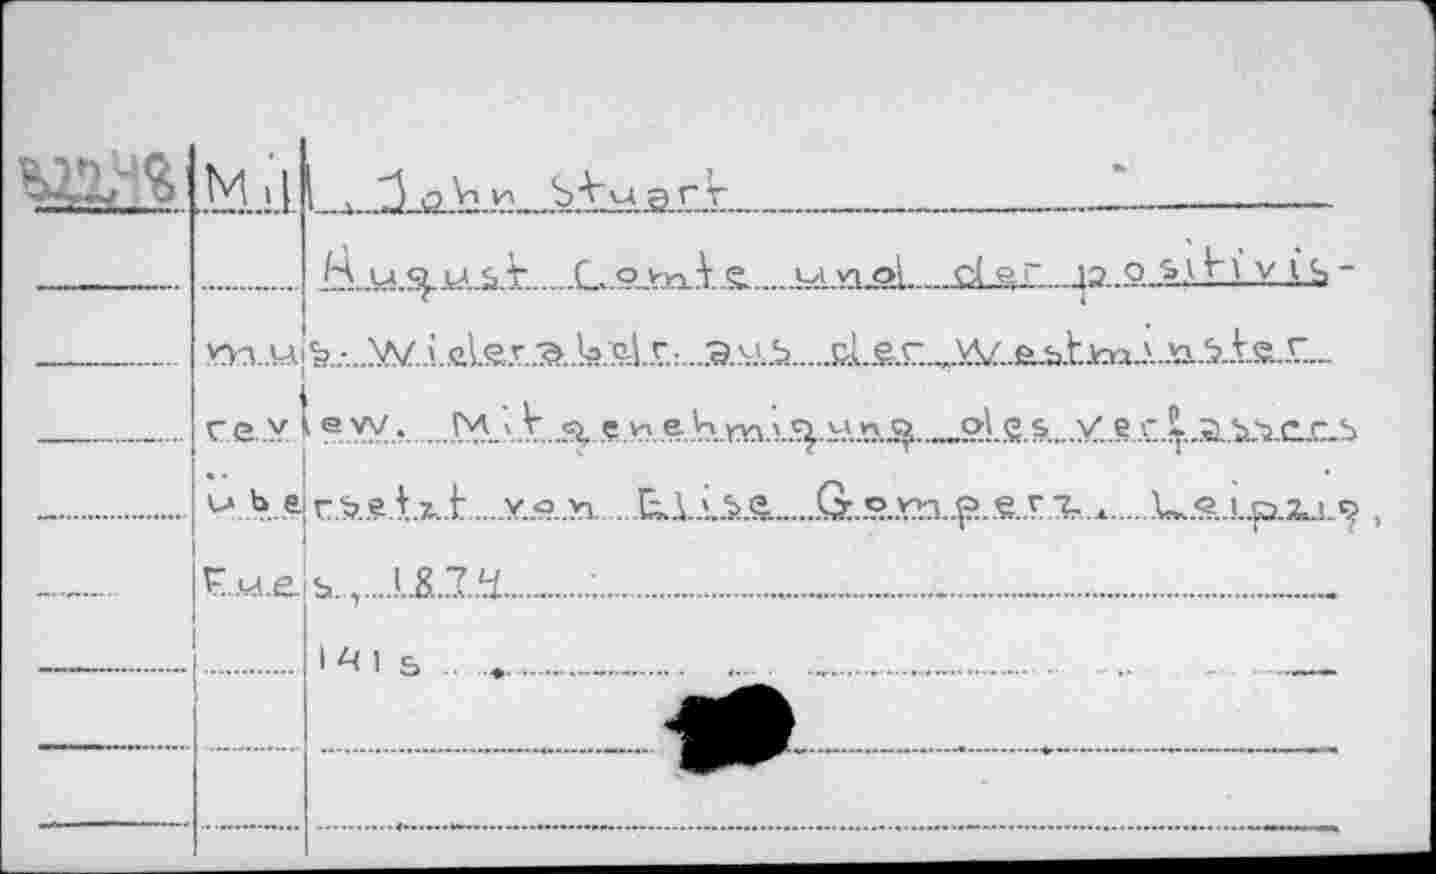 Mill, John Stuart
August Comte und der positivis-
mus. Widerabdr. aus der Westminster
review. Mit genehmigung des verfassers
übersetzt von Elise Gomperz. Leipzig,
Fues, 1874
141 s